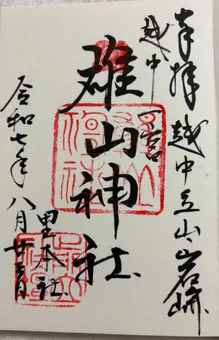 奉拝 越中立山岩峅
越中
一宮
雄山神社
里本社
令和七年八月廿三日